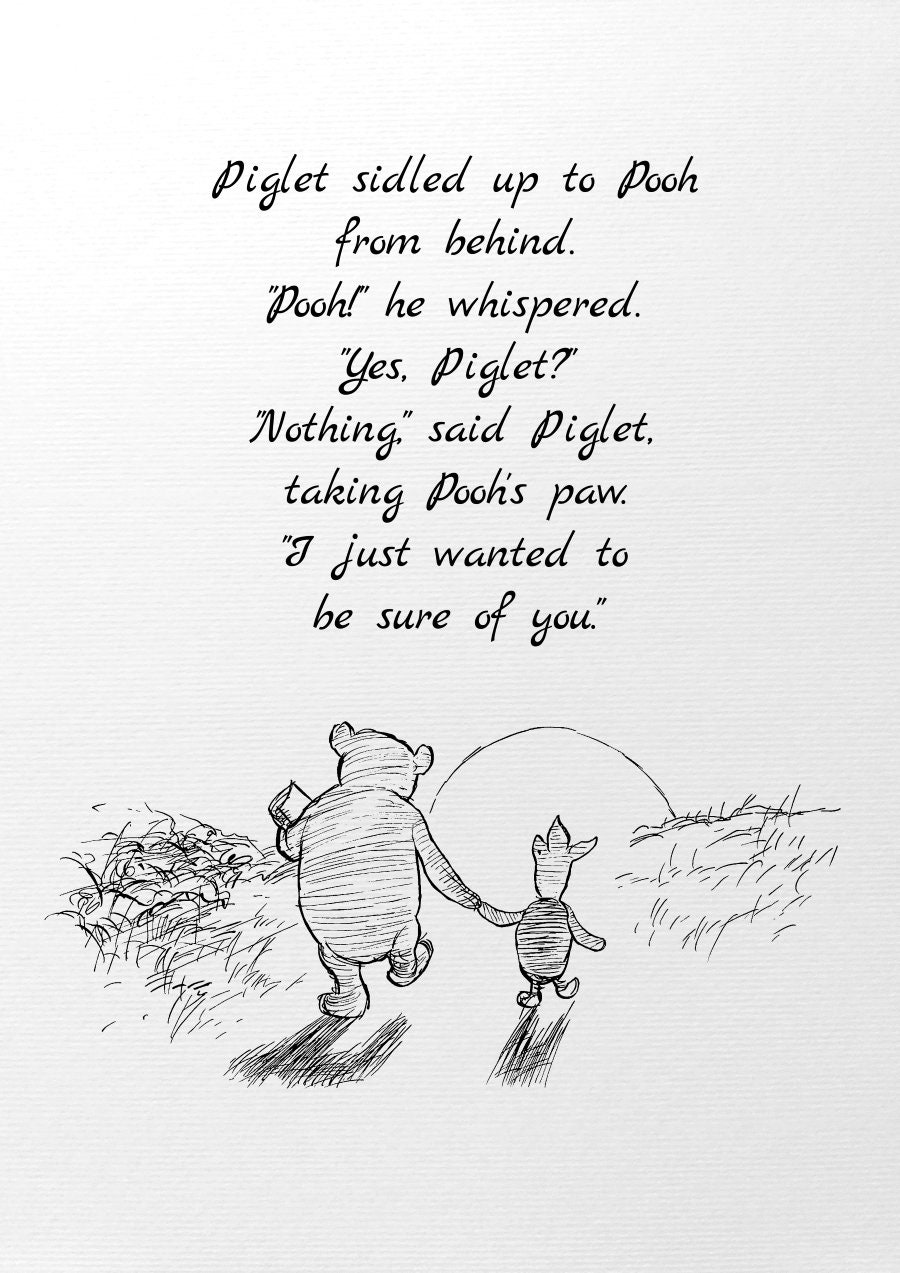 Piglet sidled up to Pooh
from behind.
"Pooh!" he whispered.
"Yes, Piglet?"
"Nothing," said Piglet,
taking Pooh's paw.
"I just wanted to
be sure of you."